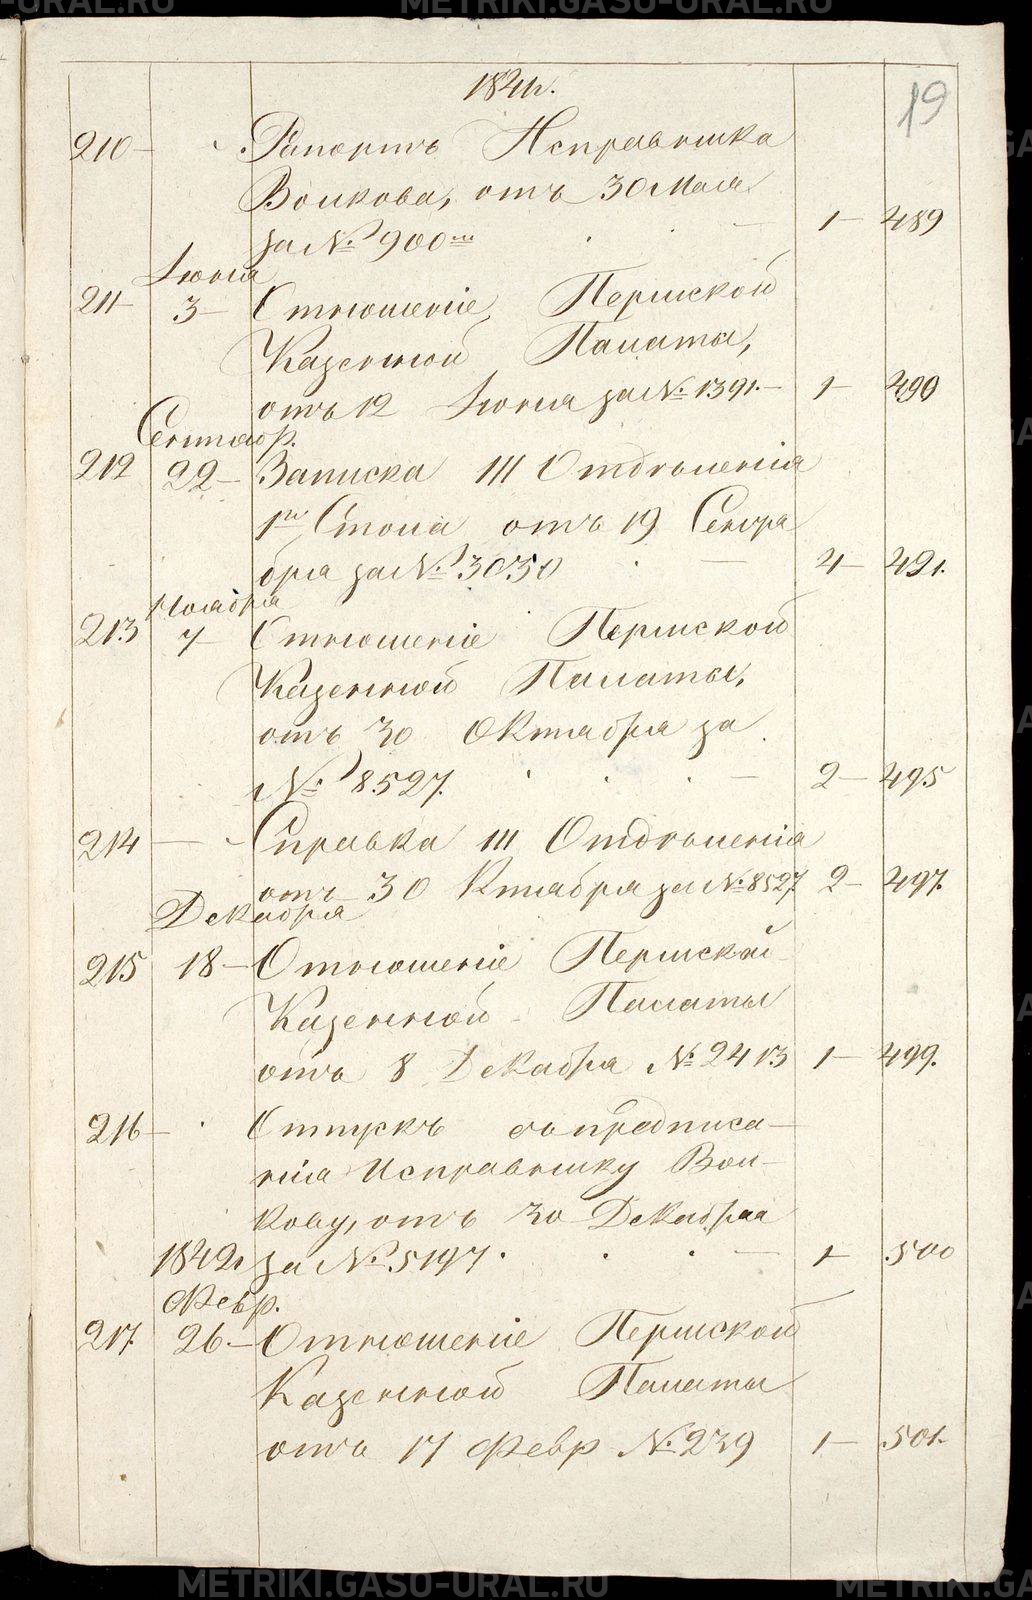 METRIKI.GASO-URAL.RU
19
1841.
210 — Рапортъ Исправника
Волкова, отъ 30 Мая
за № 900ᵐъ — 1 — 489
Іюня
211 3 — Отношеніе Пермской
Казенной Палаты,
отъ 12 Іюня за № 1391. — 1 — 490
Сентябр.
212 22 — Записка III Отдѣленія
1го Стола отъ 19 Сентя
бря за № 3030 — 4 — 491.
Ноября
213 7 Отношеніе Пермской
Казенной Палаты,
отъ 30 Октября за
№ 8527. — 2 — 495
214 — Справка III Отдѣленія
отъ 30 Ктября за № 8527. 2 — 497.
Декабря
215 18 — Отношеніе Пермской
Казенной Палаты
отъ 8 Декабря № 2413 1 — 499.
216 — Отпускъ съ предписа-
нія Исправнику Вол-
кову, отъ 30 Декабря
1842 за № 5197. — 1 — 500
Февр.
217. 26. — Отношеніе Пермской
Казенной Палаты
отъ 17 Февр № 239 1 — 501.
METRIKI.GASO-URAL.RU